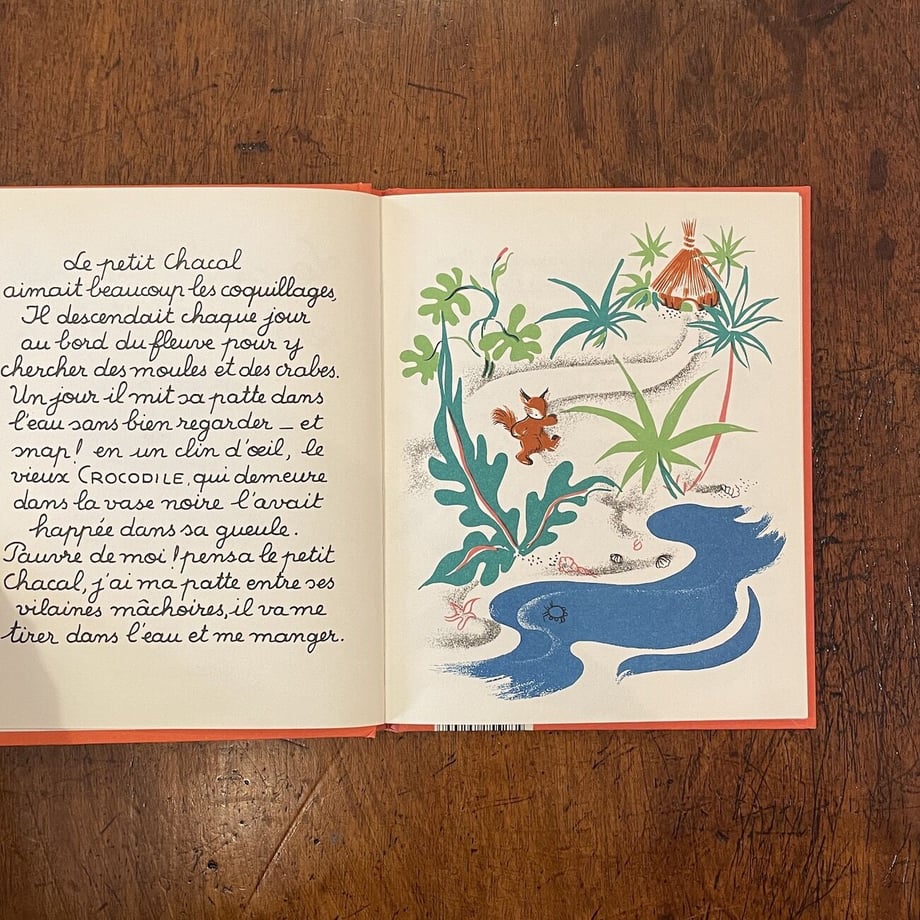 Le petit Chacal
aimait beaucoup les coquillages,
Il descendait chaque jour
au bord du fleuve pour y
chercher des moules et des crabes.
Un jour il mit sa patte dans
l'eau sans bien regarder _ et
snap! en un clin d'œil, le
vieux CROCODILE, qui demeure
dans la vase noire l'avait
happée dans sa gueule.
Pauvre de moi! pensa le petit
Chacal, j'ai ma patte entre ses
vilaines mâchoires, il va me
tirer dans l'eau et me manger.